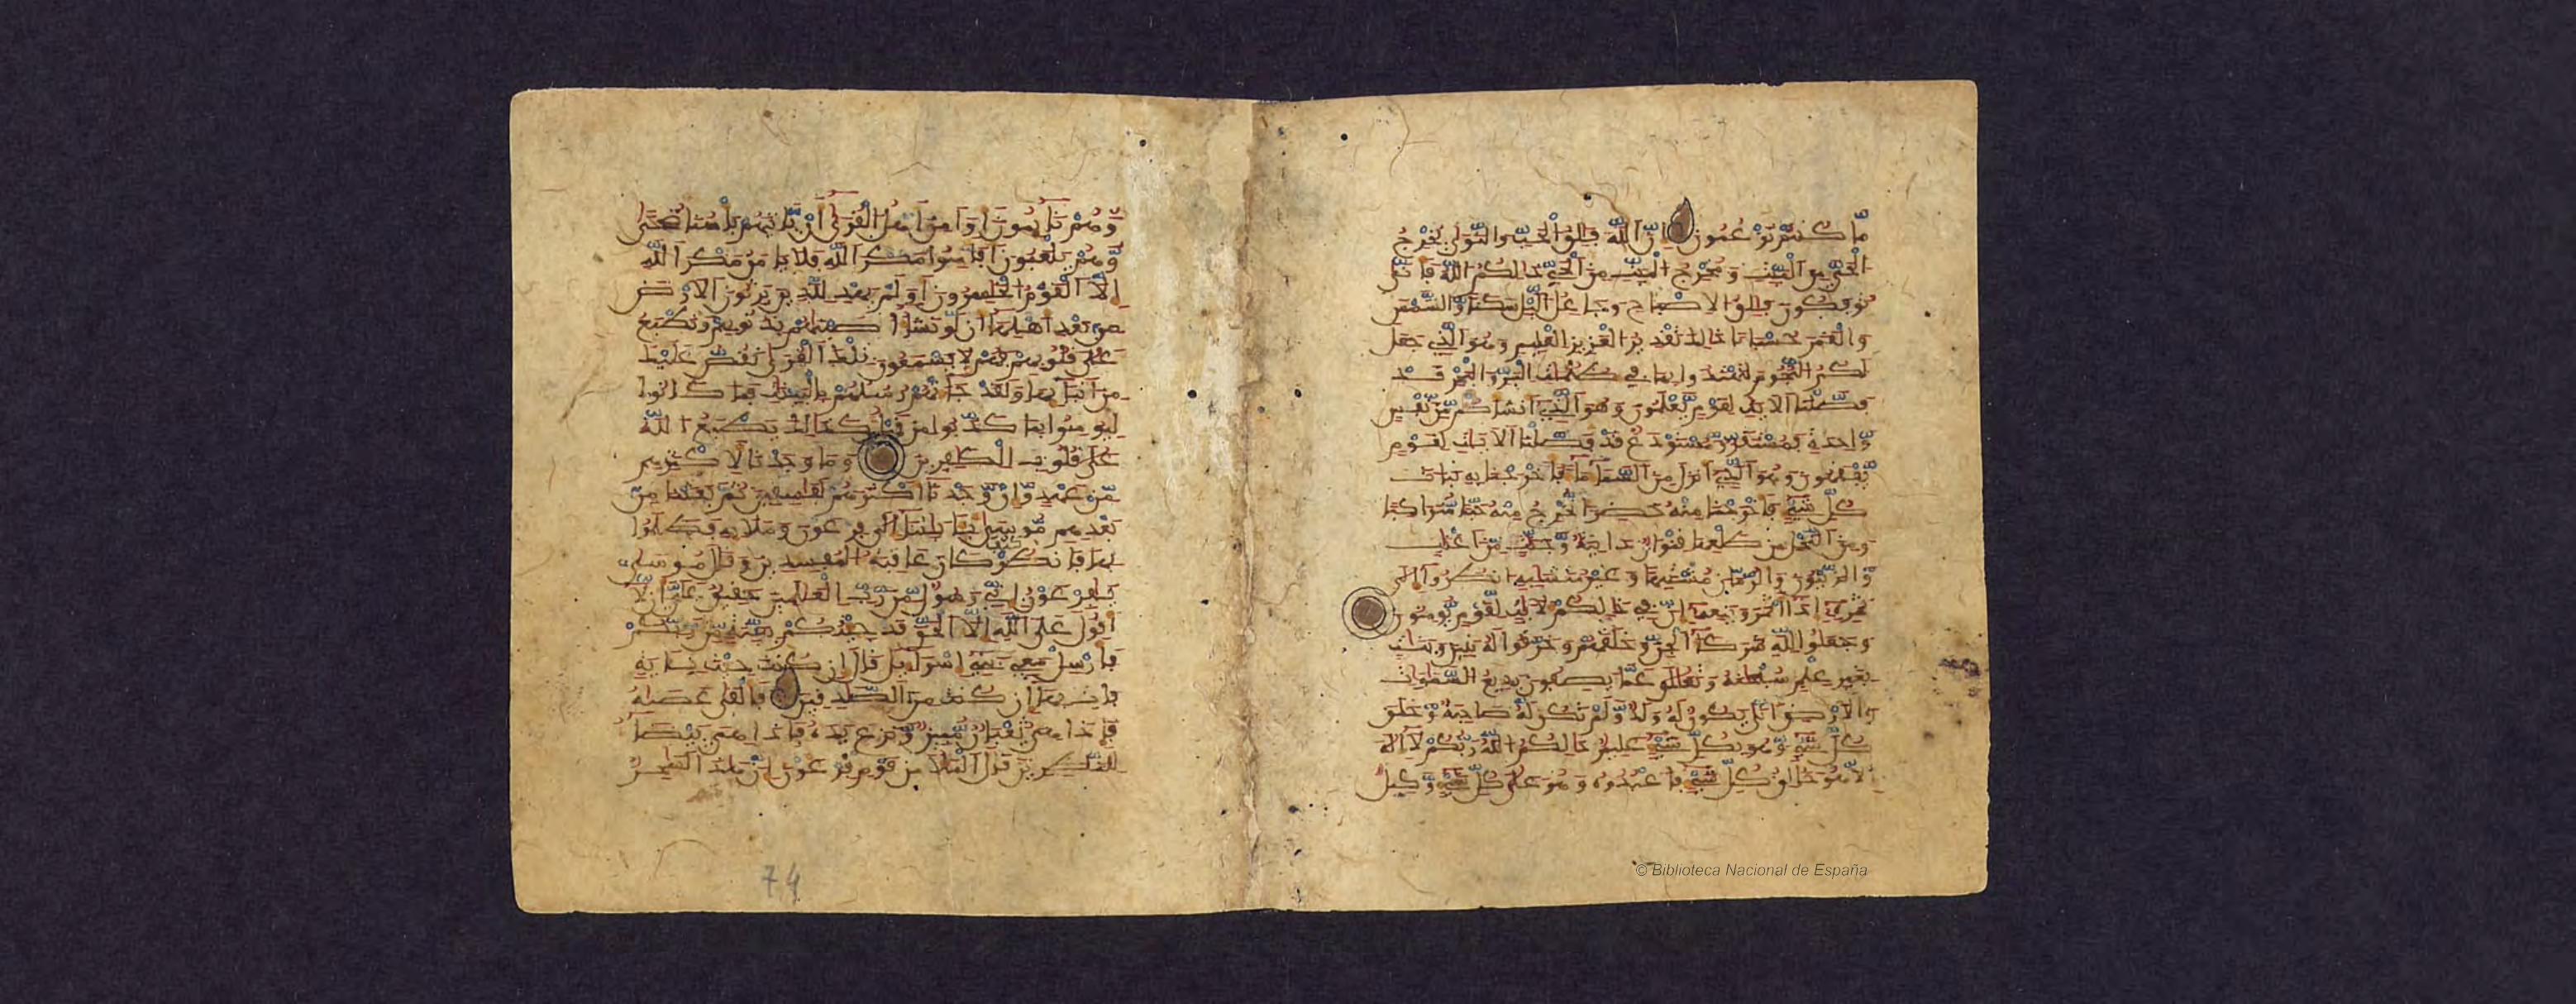 ما كنتم تزعمون ان الله فلق الحب والنوى يخرج
الحي من الميت ومخرج الميت من الحي ذلكم الله فانى
توفكون فالق الاصباح وجاعل اليل سكنا والشمس
والقمر حسبانا ذلك تقدير العزيز العليم وهو الذي جعل
لكم النجوم لتهتدوا بها في ظلمت البر والبحر قد
فصلنا الايت لقوم يعلمون وهو الذي انشاكم من نفس
واحدة فمستقر ومستودع قد فصلنا الايت لقوم
يفقهون وهو الذي انزل من السما ما فاخرجنا به نبات
كل شي فاخرجنا منه خضرا نخرج منه حبا متراكبا
ومن النخل من طلعها قنوان دانية وجنت من اعنب
والزيتون والرمان مشتبها وغير متشبه انظروا الى
ثمره اذا اثمر وينعه ان في ذلكم لايت لقوم يومنون
وجعلوا لله شركا الجن وخلقهم وخرقوا له بنين وبنت
بغير علم سبحنه وتعلى عما يصفون بديع السموات
والارض انى يكون له ولد ولم تكن له صاحبة وخلق
كل شي وهو بكل شي عليم ذلكم الله ربكم لا اله
الا هو خالق كل شي فاعبدوه وهو على كل شي وكيل
وهم نايمون اوامن اهل القرى ان ياتيهم باسنا ضحى
وهم يلعبون افامنوا مكر الله فلا يامن مكر الله
الا القوم الخسرون اولم يهد للذين يرثون الارض
من بعد اهلها ان لو نشا اصبنهم بذنوبهم ونطبع
على قلوبهم فهم لا يسمعون تلك القرى نقص عليك
من انبايها ولقد جاتهم رسلهم بالبينت فما كانوا
ليومنوا بما كذبوا من قبل كذلك يطبع الله
على قلوب الكفرين وما وجدنا لاكثرهم
من عهد وان وجدنا اكثرهم لفسقين ثم بعثنا من
بعدهم موسى بايتنا الى فرعون وملايه فظلموا
بها فانظر كيف كان عاقبة المفسدين وقال موسى
يفرعون اني رسول من رب العلمين حقيق على ان لا
اقول على الله الا الحق قد جيتكم ببينة من ربكم
فارسل معي بني اسرايل قال ان كنت جيت باية
فات بها ان كنت من الصدقين فالقى عصاه
فاذا هي ثعبان مبين ونزع يده فاذا هي بيضا
للنظرين قال الملا من قوم فرعون ان هذا لسحر
74
© Biblioteca Nacional de España